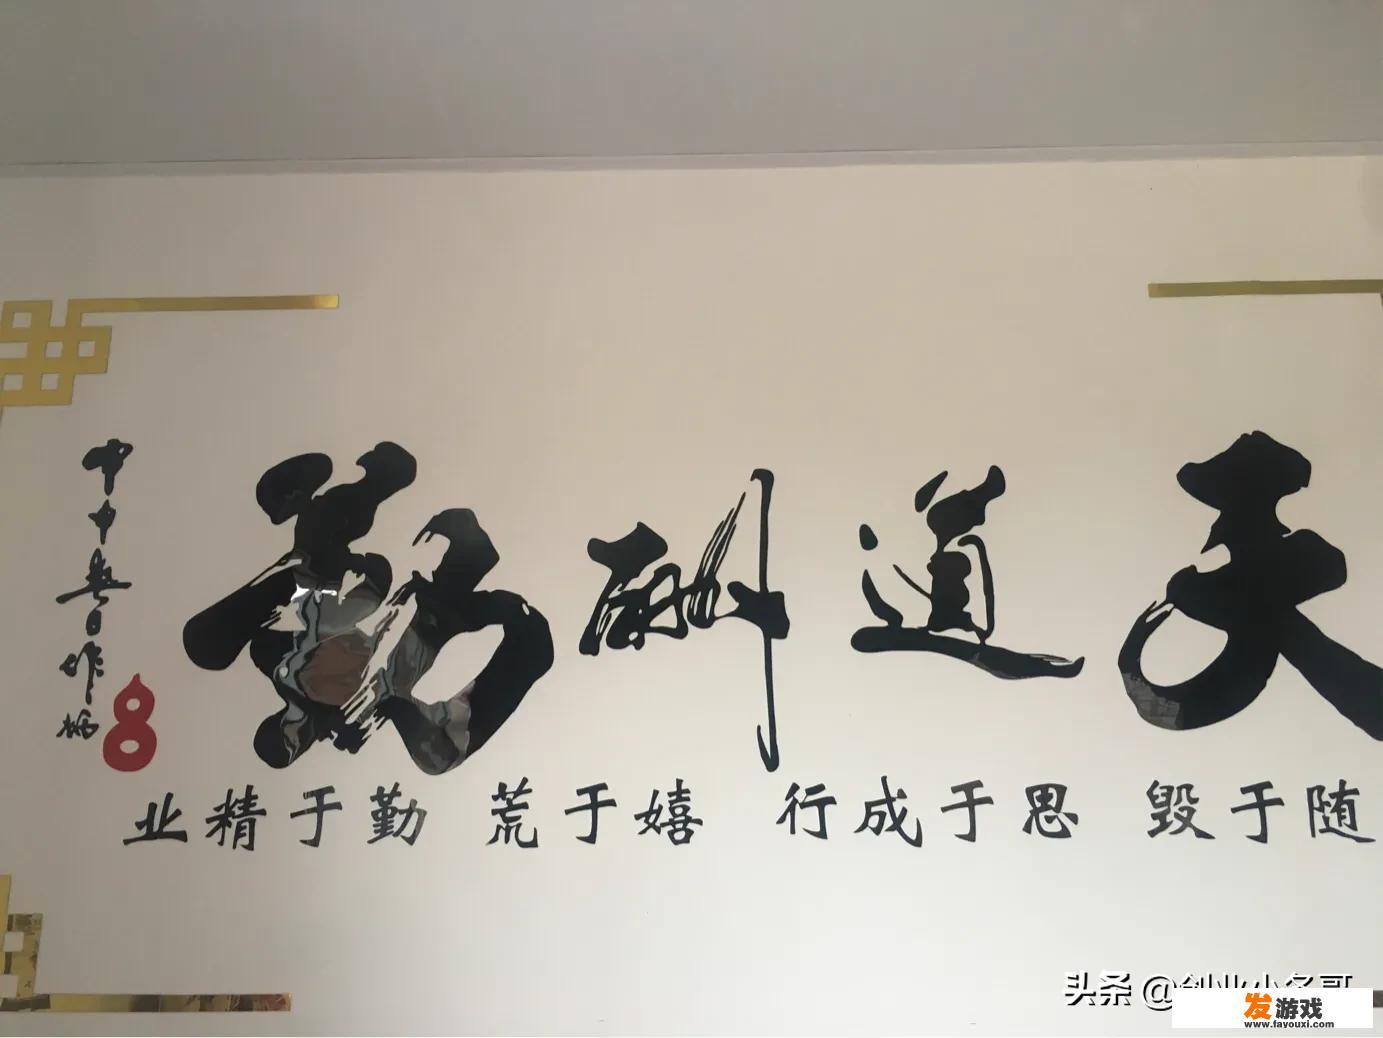 天道酬勤
业精于勤 荒于嬉 行成于思 毁于随
头条 @创业小名哥
发游戏
www.fayouxi.com